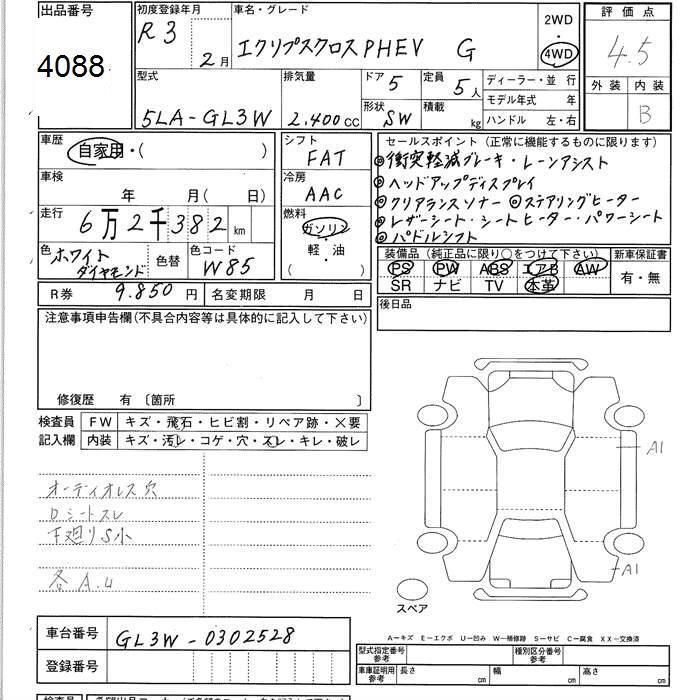 出品番号
4088
初度登録年月
R3 2月
車名・グレード
エクリプスクロスPHEV G
2WD
・
4WD
評価点
4.5
型式
5LA-GL3W
排気量
2.400cc
ドア 5
形状 SW
定員 5人
積載 kg
ディーラー・並 行
モデル年式 年
ハンドル 左・右
外装 内装
B
車歴
自家用・( )
車検
年 月( 日)
走行
6万2千382km
色 ホワイトダイヤモンド
色替
色コード W85
シフト
FAT
冷房
AAC
燃料
ガソリン
・
軽・油
( )
セールスポイント(正常に機能するものに限ります)
◎衝突軽減ブレーキ・レーンアシスト
◎ヘッドアップディスプレイ
◎クリアランスソナー ◎ステアリングヒーター
◎レザーシート・シートヒーター・パワーシート
◎パドルシフト
装備品(純正品に限り○をつけて下さい)
PS PW ABS エアB AW
SR ナビ TV 本革
新車保証書
有・無
R券 9.850円
名変期限 月 日
後日品
注意事項申告欄(不具合内容等は具体的に記入して下さい)
修復歴 有〔箇所 〕
検査員
記入欄
FW キズ・飛石・ヒビ割・リペア跡・×要
内装 キズ・汚レ・コゲ・穴・スレ・キレ・破レ
オーディオレス穴
Dシートスレ
下廻りS小
各A.U
A1
A1
スペア
車台番号 GL3W-0302528
登録番号
A-キズ E-エクボ U-凹み W-補修跡 S-サビ C-腐食 XX-交換済
型式指定番号
参考
種別区分番号
参考
車庫証明用
参考
長さ cm
幅 cm
高さ cm